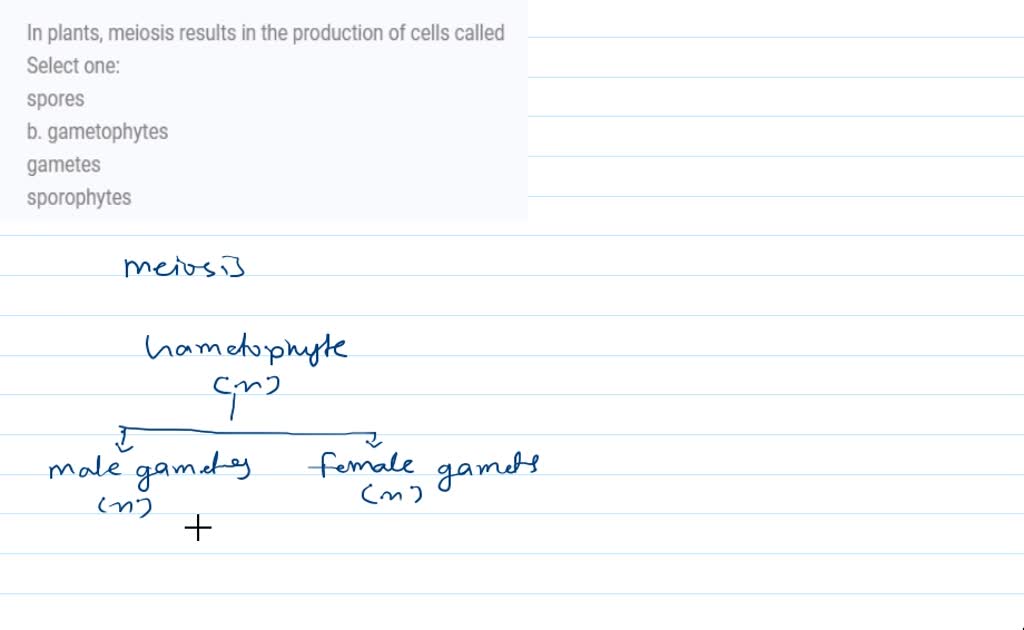 In plants, meiosis results in the production of cells called
Select one:
spores
b. gametophytes
gametes
sporophytes
meiosis
Gametophyte
(n)
male gametes female gamets
(n) (n)